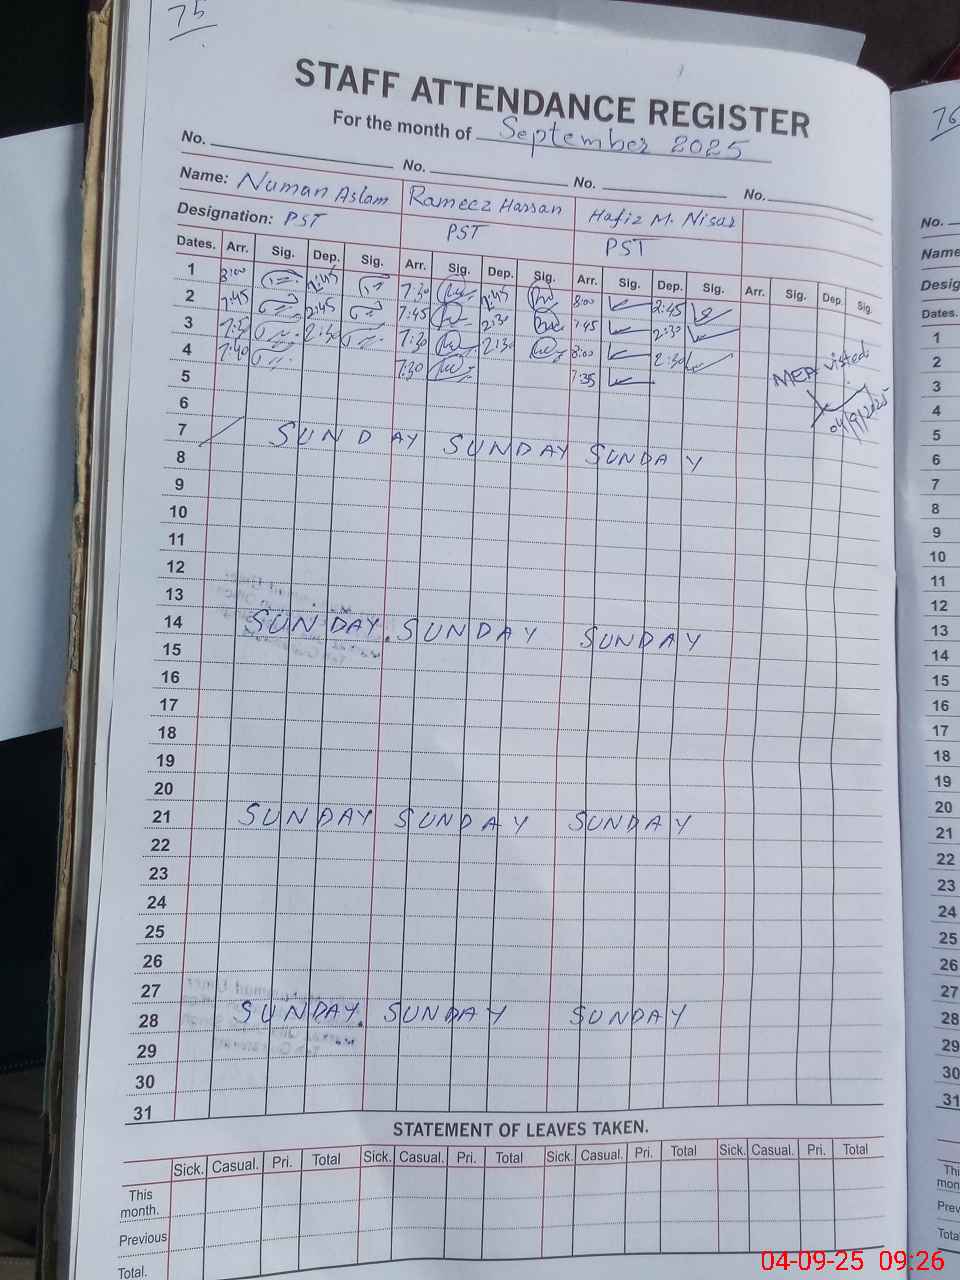 75
STAFF ATTENDANCE REGISTER
For the month of September 2025
No. No. No. No.
Name: Numan Aslam Rameez Hassan Hafiz M. Nisar
Designation: PST PST PST
Dates. Arr. Sig. Dep. Sig. Arr. Sig. Dep. Sig. Arr. Sig. Dep. Sig. Arr. Sig. Dep. Sig.
1 8:00 2:45 7:30 2:45 8:00 2:45
2 7:45 2:45 7:45 2:30 7:45 2:30
3 7:30 2:30 7:30 2:30 8:00 2:30
4 7:40 7:30 7:35
MEA visted
04/9/2025
5
6
7 SUNDAY SUNDAY SUNDAY
8
9
10
11
12
13
14 SUNDAY. SUNDAY SUNDAY
15
16
17
18
19
20
21 SUNDAY SUNDAY SUNDAY
22
23
24
25
26
27
28 SUNDAY. SUNDAY SUNDAY
29
30
31
STATEMENT OF LEAVES TAKEN.
Sick. Casual. Pri. Total Sick. Casual. Pri. Total Sick. Casual. Pri. Total Sick. Casual. Pri. Total
This
month.
Previous
Total.
76
No.
Name
Desig
Dates.
1
2
3
4
5
6
7
8
9
10
11
12
13
14
15
16
17
18
19
20
21
22
23
24
25
26
27
28
29
30
31
Thi
mon
Prev
Tota
04-09-25 09:26